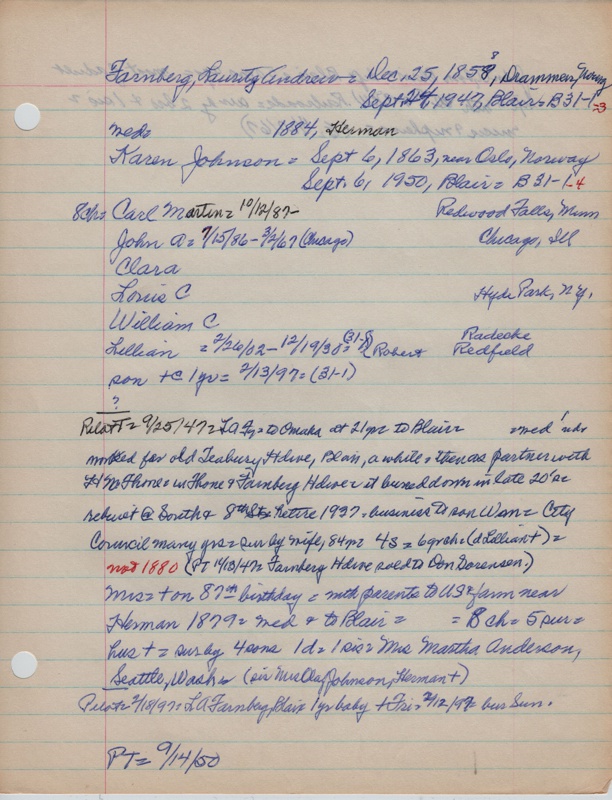 Farnberg, Lauritz Andrew = Dec, 25, 1858, Drammen, Norway
Sept 24, 1947, Blair = B 31-1-3
med= 1884, Herman
Karen Johnson = Sept 6, 1863, near Oslo, Norway
Sept. 6, 1950, Blair = B 31-1-4
8ch = Carl Martin = 10/12/87- Redwood Falls, Minn
John A = 7/15/86 - 3/2/67 (Chicago) Chicago, Ill
Clara
Louis C Hyde Park, N.Y.
William C
Lillian = 2/26/02 - 12/19/38 = (31-1) (Robert Radecke Redfield
son + @ 1 yr = 2/13/97 = (31-1)
?
Pilot = 9/25/47 = LA = to Omaha at 21 yr to Blair = med
worked for old Hdwe, a while = then as partner with
= in & Farnberg Hdwe = it burned down in late 20's =
rebuilt @ South & 8th Sts = retire 1937 = business to son Wm = City
Council many yrs = sur by wife, 84 yr = 4s = 6 grch = (d Lillian +) =
not 1880 (PT Farnberg Hdwe sold to Don Sorensen.)
Mrs = + on 87th birthday = with parents to US & farm near
Herman 1879 = med & to Blair = = 8 ch = 5 sur =
hus + = sur by 4 sons 1 d = 1 sis = Mrs Martha Anderson,
Seattle, Wash = (sis Mrs Johnson, Herman +)
Pilot = 2/18/97 = LA Farnberg, Blair 1 yr baby + Fri = 2/12/97 bur Sun.
PT = 9/14/50